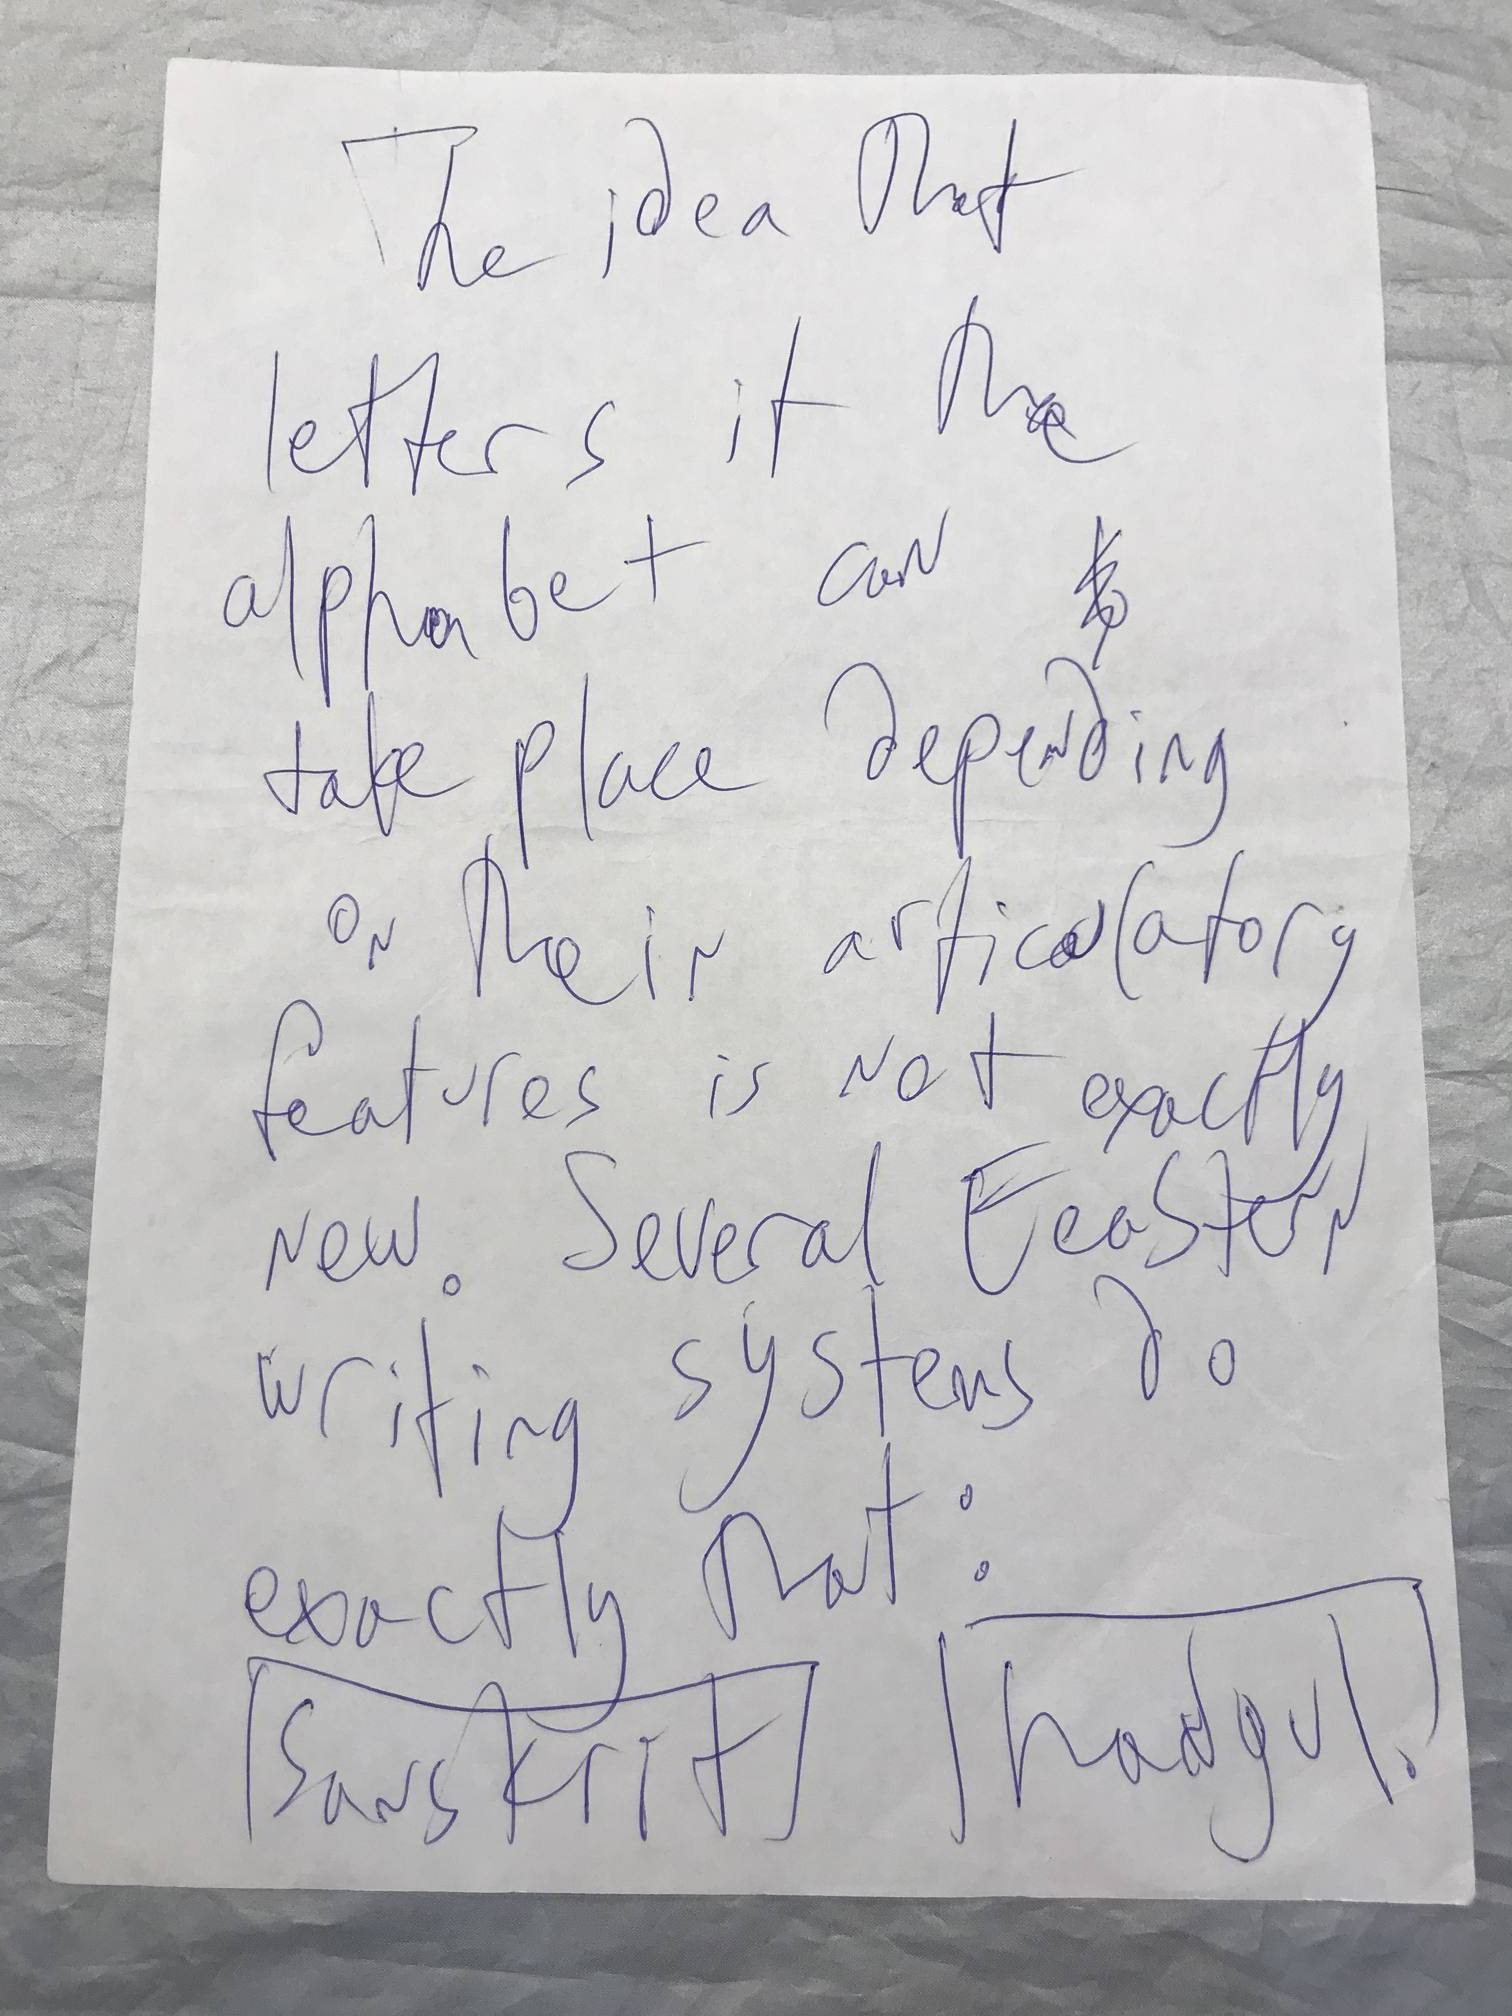 The idea that
letters it the
alphabet can
take place depending
on their articulatory
features is not exactly
new. Several Eeastern
writing systems do
exactly that:
Sanskrit hadgul.